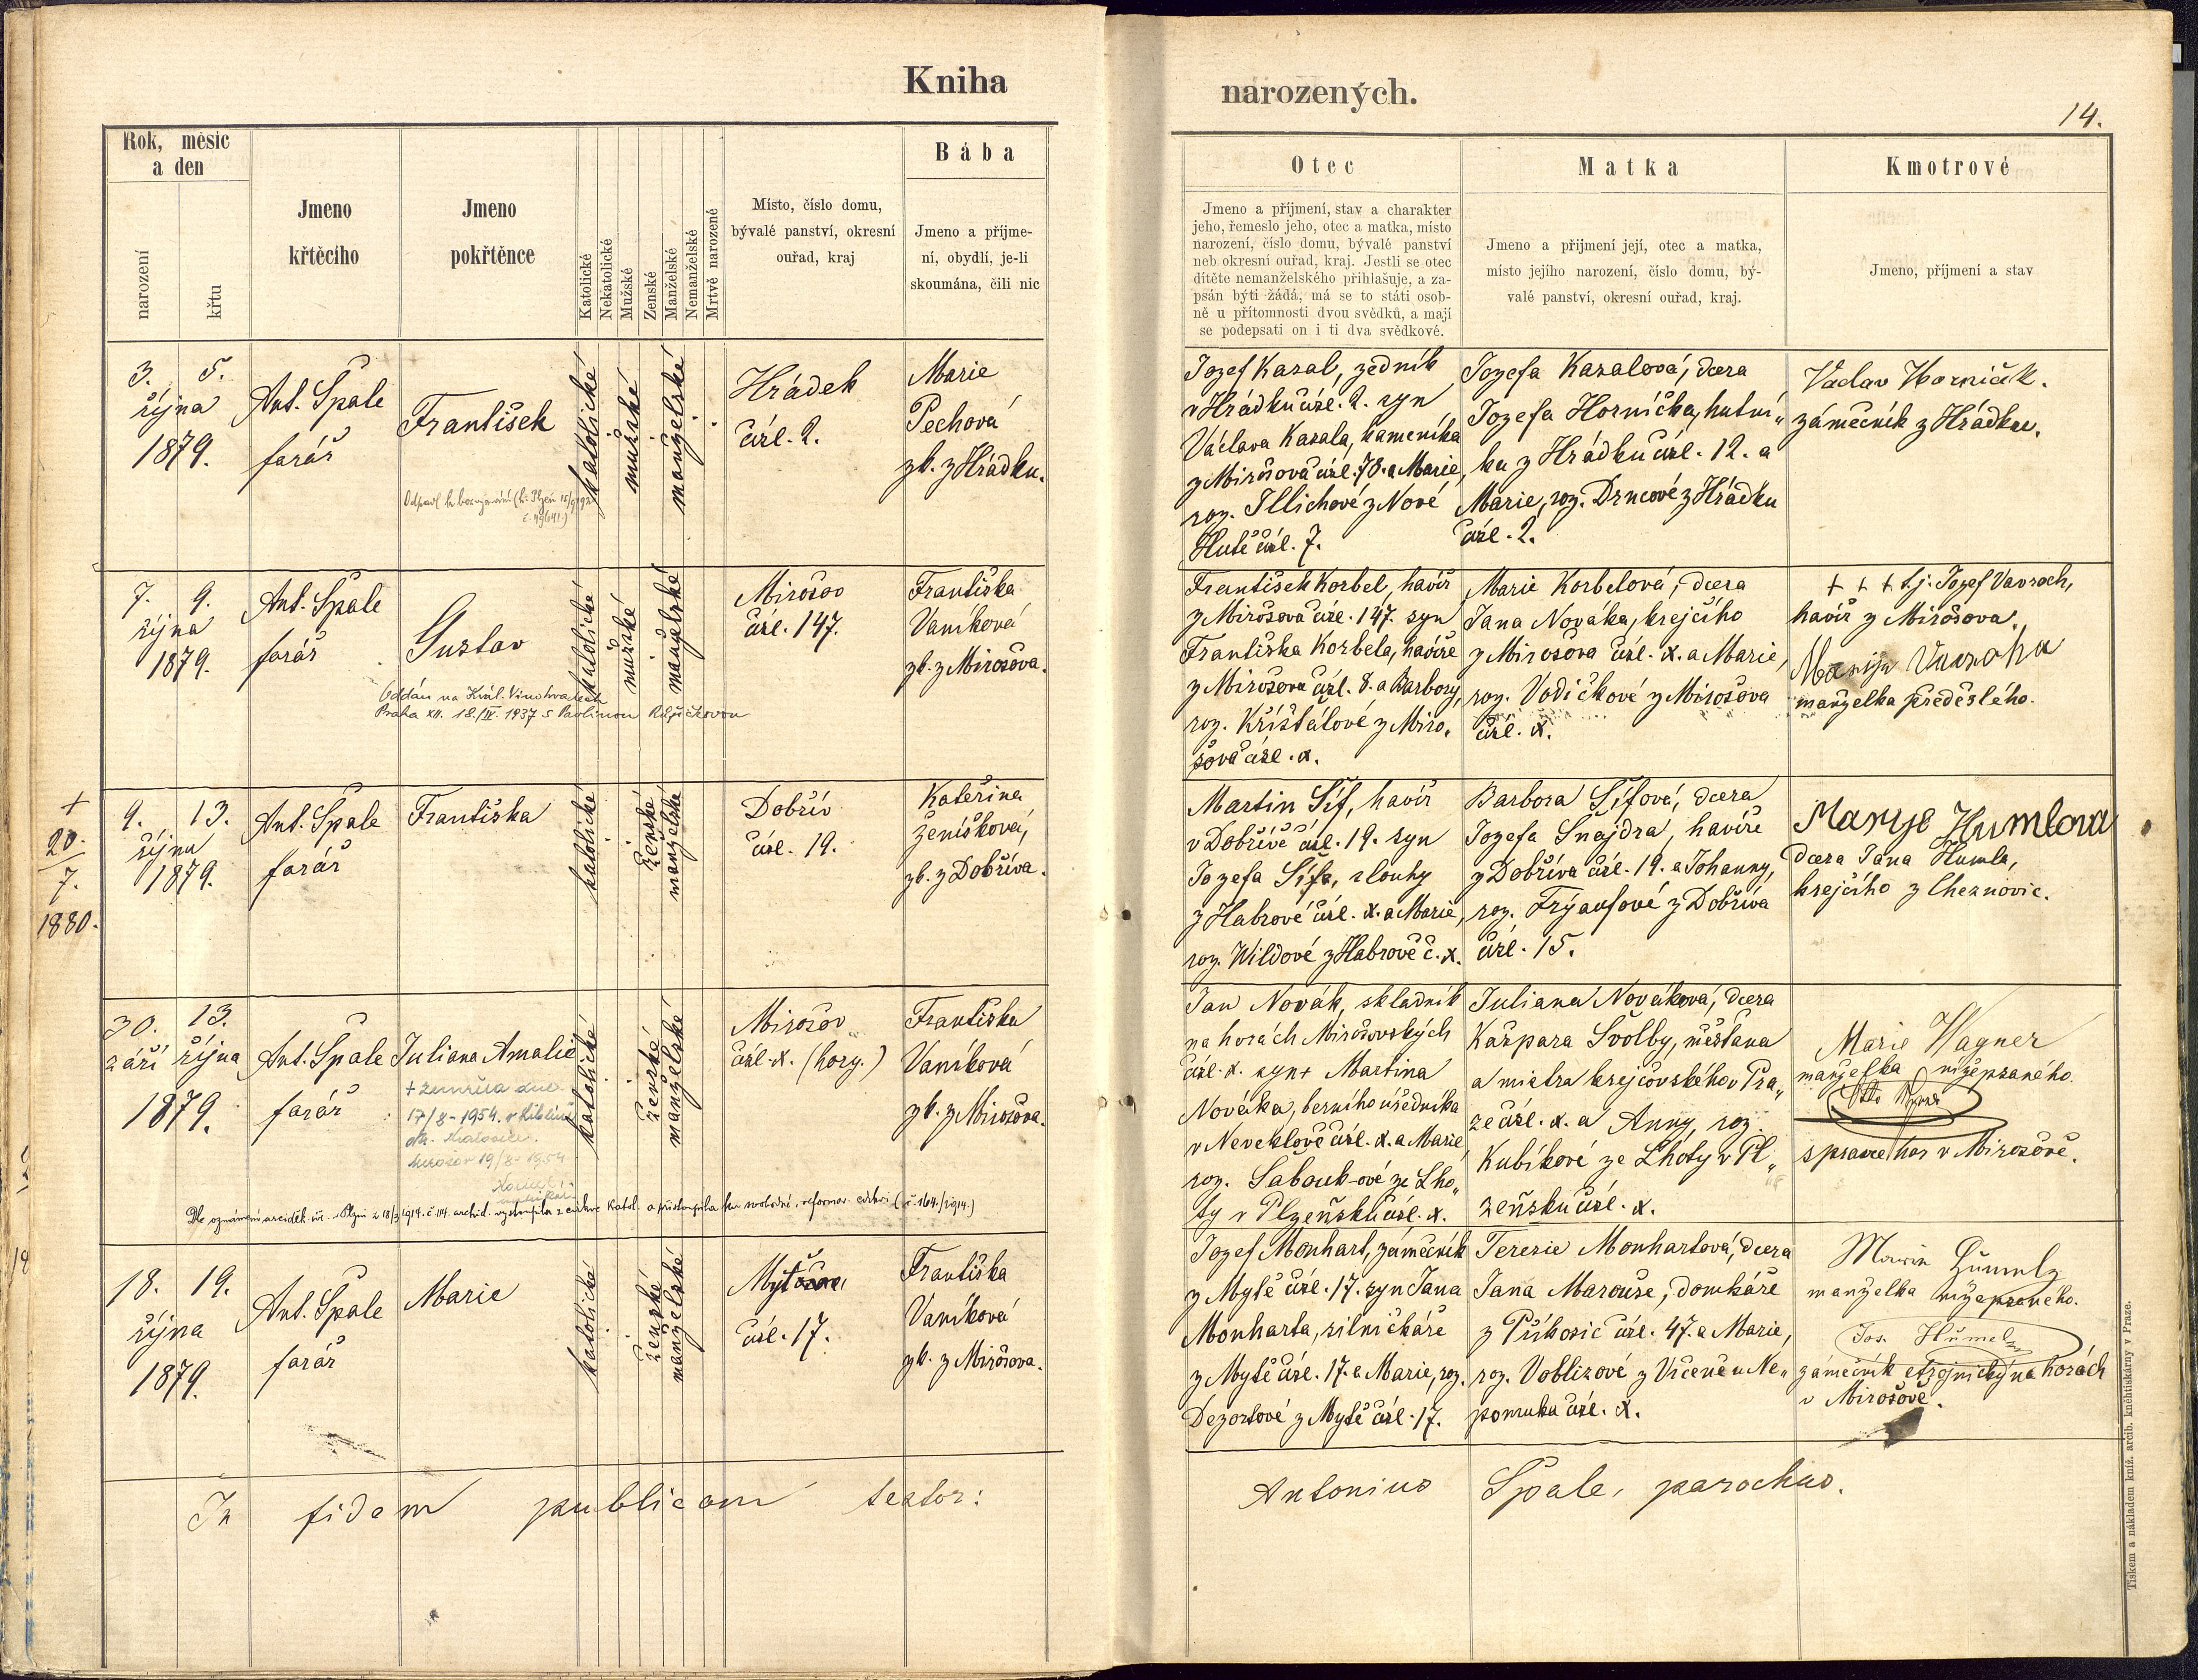 Kniha
narozených.
14.
Rok, měsíc
a den
narození
křtu
Jmeno
křtěcího
Jmeno
pokřtěnce
Katolické
Nekatolické
Mužské
Ženské
Manželské
Nemanželské
Mrtvě narozené
Místo, číslo domu,
bývalé panství, okresní
ouřad, kraj
Bába
Jmeno a příjme-
ní, obydlí, je-li
skoumána, čili nic
Otec
Jmeno a příjmení, stav a charakter
jeho, řemeslo jeho, otec a matka, místo
narození, číslo domu, bývalé panství
neb okresní ouřad, kraj. Jestli se otec
dítěte nemanželského přihlašuje, a za-
psán býti žádá, má se to státi osob-
ně u přítomnosti dvou svědků, a mají
se podepsati on i ti dva svědkové.
Matka
Jmeno a přijmení její, otec a matka,
místo jejího narození, číslo domu, bý-
valé panství, okresní ouřad, kraj.
Kmotrové
Jmeno, příjmení a stav
3. 5.
října
1879.
Ant. Špale
farář
František
katolické
mužské
manželské
Hrádek
čísl. 2.
Marie
Pechová
zk. z Hrádku.
Jozef Kasal, zedník
v Hrádku čísl. 2. syn
Václava Kasala, kameníka
z Mirošova čísl. 78. a Marie,
roz. Illichové z Nové
Hutě čísl. 7.
Jozefa Kasalová, dcera
Jozefa Horníčka, hutní„
ka z Hrádku čísl. 12. a
Marie, roz. Drncové z Hrádku
čísl. 2.
Václav Horniček.
zámečník z Hrádku.
7. 9.
října
1879.
Ant. Špale
farář
Gustav
Oddán na Král. Vinohradech
Praha XII. 18./IV. 1937 s Pavlinou
katolické
mužské
manželské
Mirošov
čísl. 147.
Františka
Vaníková
zk. z Mirošova.
František Korbel, havíř
z Mirošova čísl. 147. syn
Františka Korbela, havíře
z Mirošova čísl. 8. a Barbory,
roz. Křištálové z Miro„
šova čísl. x.
Marie Korbelová, dcera
Jana Nováka, krejčího
z Mirošova čísl. x. a Marie,
roz. Vodičkové z Mirošova
čísl. x.
+ + + t. j. Jozef Vavroch,
havíř z Mirošova.
Marija
manželka předešlého.
+
20.
7.
1880.
9. 13.
října
1879.
Ant. Špale
farář
Františka
katolické
ženské
manželské
Dobřív
čísl. 19.
Kateřina
Ženíšková,
zk. z Dobříva.
Martin Šíf, havíř
v Dobřívě čísl. 19. syn
Jozefa Šífa, slouhy
z Habrové čísl. x. a Marie,
roz. Wildové z Habrové č. x.
Barbora Šífová, dcera
Jozefa Šnajdra, havíře
z Dobříva čísl. 19. a Johanny,
roz. Frýaufové z Dobříva
čísl. 15.
Marye Humlova
dcera Jana Humla,
krejčího z Cheznovic.
30. 13.
září října
1879.
Ant. Špale
farář
Juliana Amalie
+ zemřela dne
17/8 - 1954
Mirošov 19/8 - 1954
katolické
ženské
manželské
Mirošov
čísl. x. (hory.)
Františka
Vaníková
zk. z Mirošova.
Jan Novák, skladník
na horách Mirošovských
čísl. x. syn + Martina
Nováka, berního úředníka
v Neveklově čísl. x. a Marie
roz. Sabouk-ové ze Lho„
ty v Plzeňsku čísl. x.
Juliana Nováková, dcera
Kašpara Svolby, měšťana
a mistra krejčovského v Pra„
ze čísl. x. a Anny, roz.
Kubíkové ze Lhoty v Pl„
zeňsku čísl. x.
Marie Wagner
manželka nížepsaného.
správce hor v Mirošově.
Dle oznámení arciděk. úř. v Plzni z 18/3 1914. č. 114. archid. vystoupila z církve katol. a přistoupila ku svobodné, reformov. církvi (č. 164./1914.)
18. 19.
října
1879.
Ant. Špale
farář
Marie
katolické
ženské
manželské
čísl. 17.
Františka
Vaníková
zk. z Mirošova.
Jozef Monhart, zámečník
z Mytě čísl. 17. syn Jana
Monharta, silničkáře
z Mytě čísl. 17. a Marie, roz.
Dezortové z Mytě čísl. 17.
Terezie Monhartová, dcera
Jana Marouše, domkáře
z Příkosic čísl. 47. a Marie,
roz. Voblizové z Vrčeně u Ne„
pomuka čísl. x.
manželka nížepsaného.
Jos.
zámečník strojnický na horách
v Mirošově.
In fidem publicam testor:
Antonius Špale, parochus.
Tiskem a nákladem kníž. arcib. knihtiskárny v Praze.